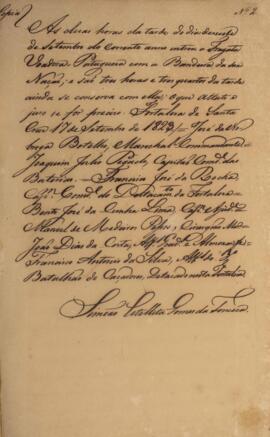 Copia
Nº 2
As duas horas da tarde do dia dezesete
de Setembro do Corrente anno entrou a Fragata
Portugueza com a Bandeira da sua
Nação, e são tres horas e tres quartos da tarde
ainda se conserva com ella; o que attesto e
juro se for preciso. Fortaleza de Santa
Cruz 17 de Setembro de 1823 // José da
Botelho, Marechal Commandante
Joaquim Julio Capitão Comd. das
Baterias. Francisco José da Rocha
Capm. Comd. do Destacamto. da Fortaleza
Bento José da Cunha Lima Capm. Ajud.
Manoel de Medeiros Cirurgião
João Dias da Costa, Alfs.
Francisco Antonio da Silva, Alfs. do
Batalhão de Caçadores, destacado nesta Fortaleza
Simeão Estellita Gomes da Fonseca